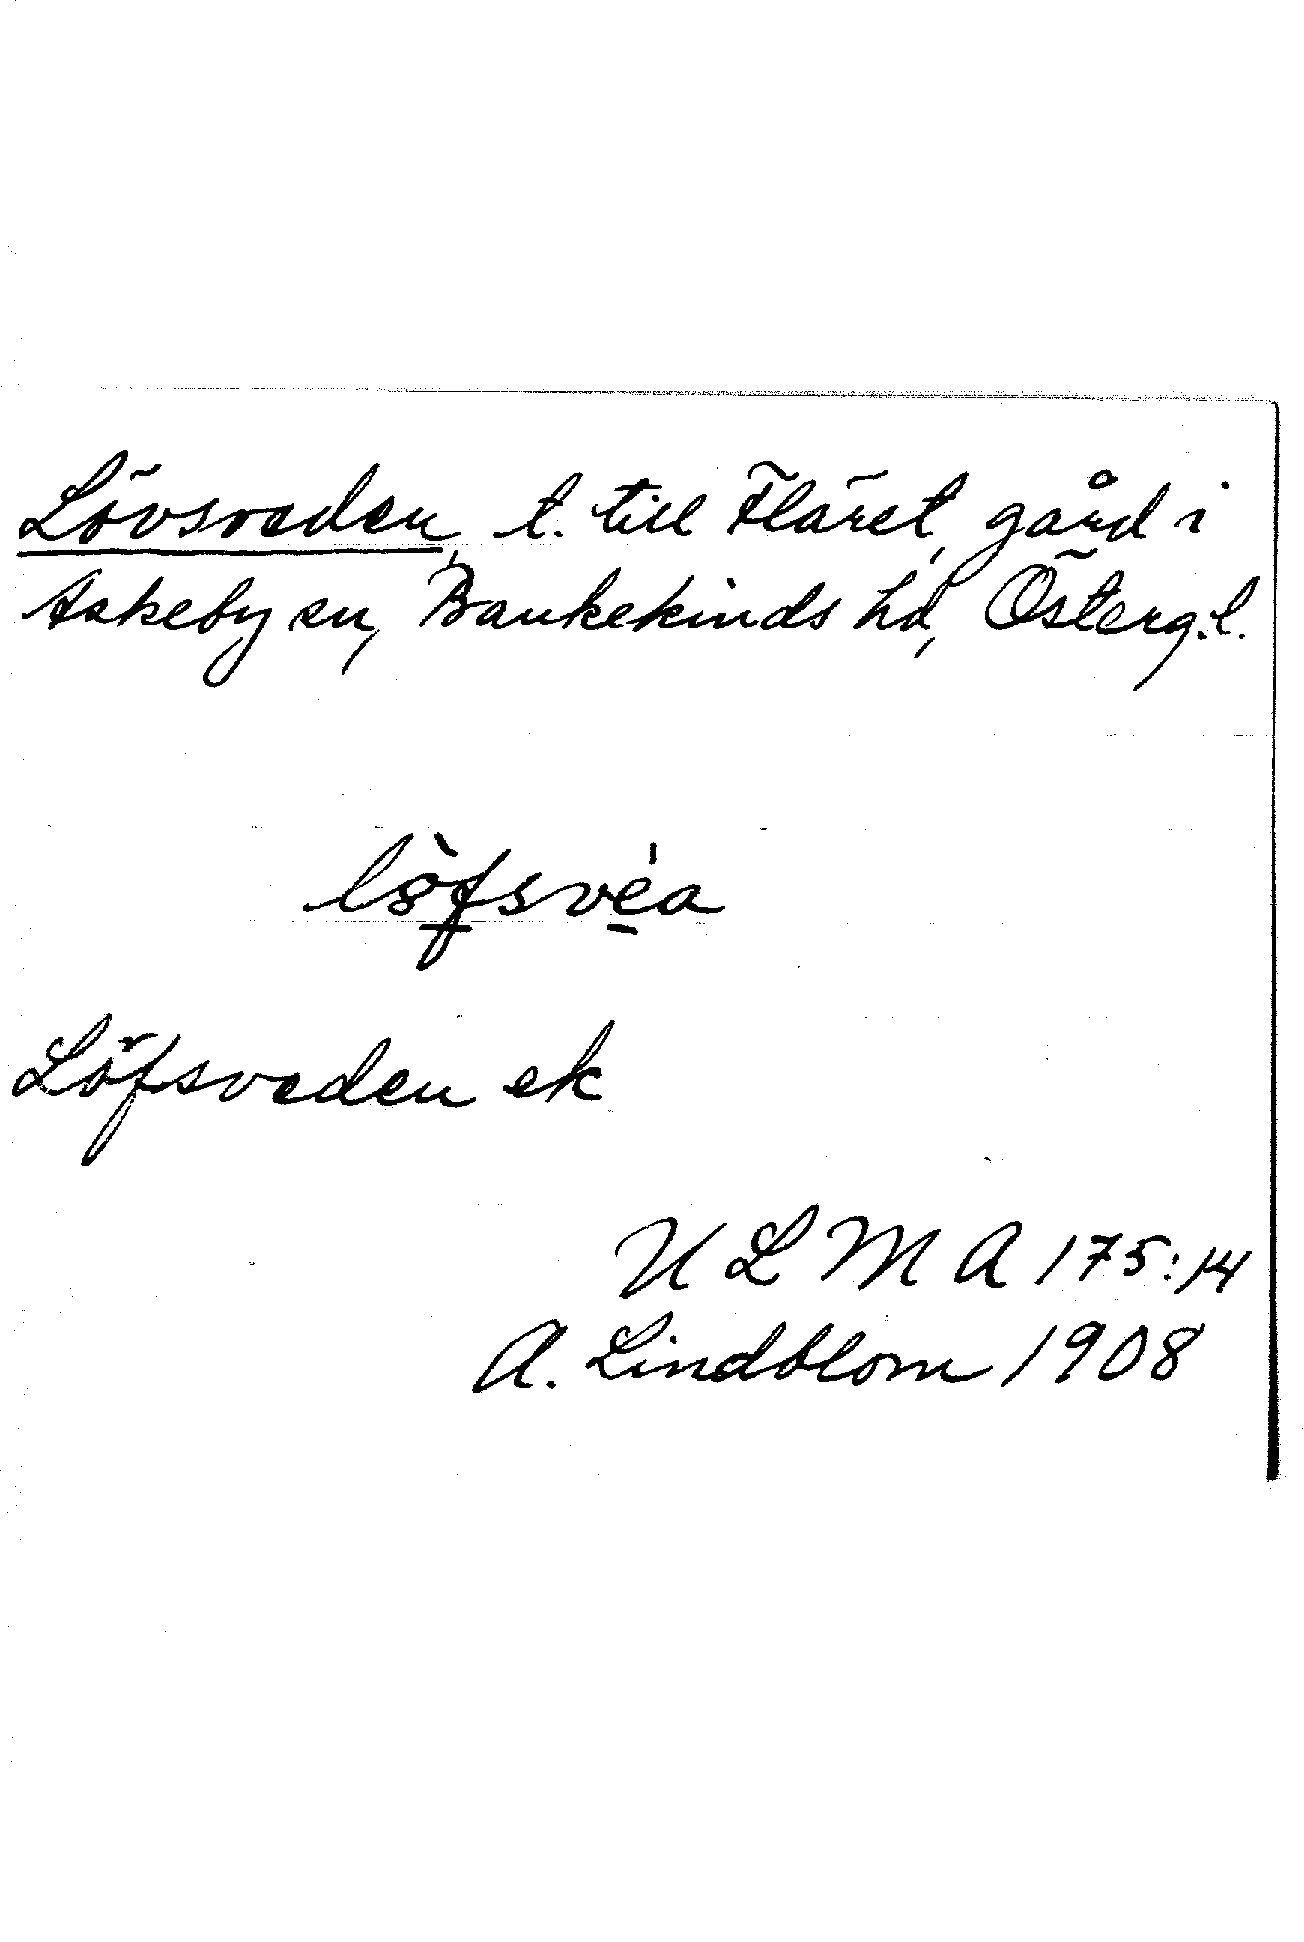 Lövsveden, t. till Fläret, gård i
Askeby sn, Bankekinds hd, Österg. l.
löfsvéa
Löfsveden ek
ULMA 175:14
A. Lindblom 1908